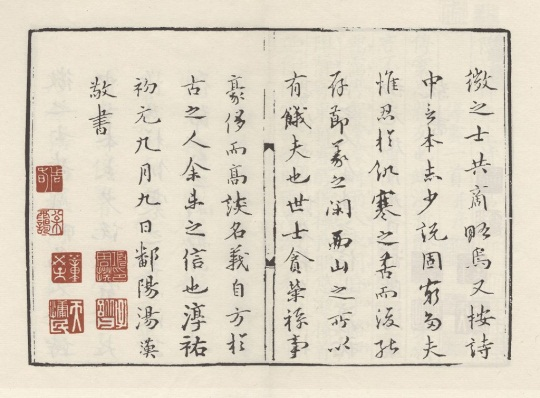 微之士共商略焉又按詩
中言本志少說固窮多夫
惟忍於飢寒之苦而後能
存節義之閑西山之所以
有餓夫也世士貪榮祿事
豪侈而高談名義自方於
古之人余未之信也淳祐
初元九月九日鄱陽湯漢
敬書